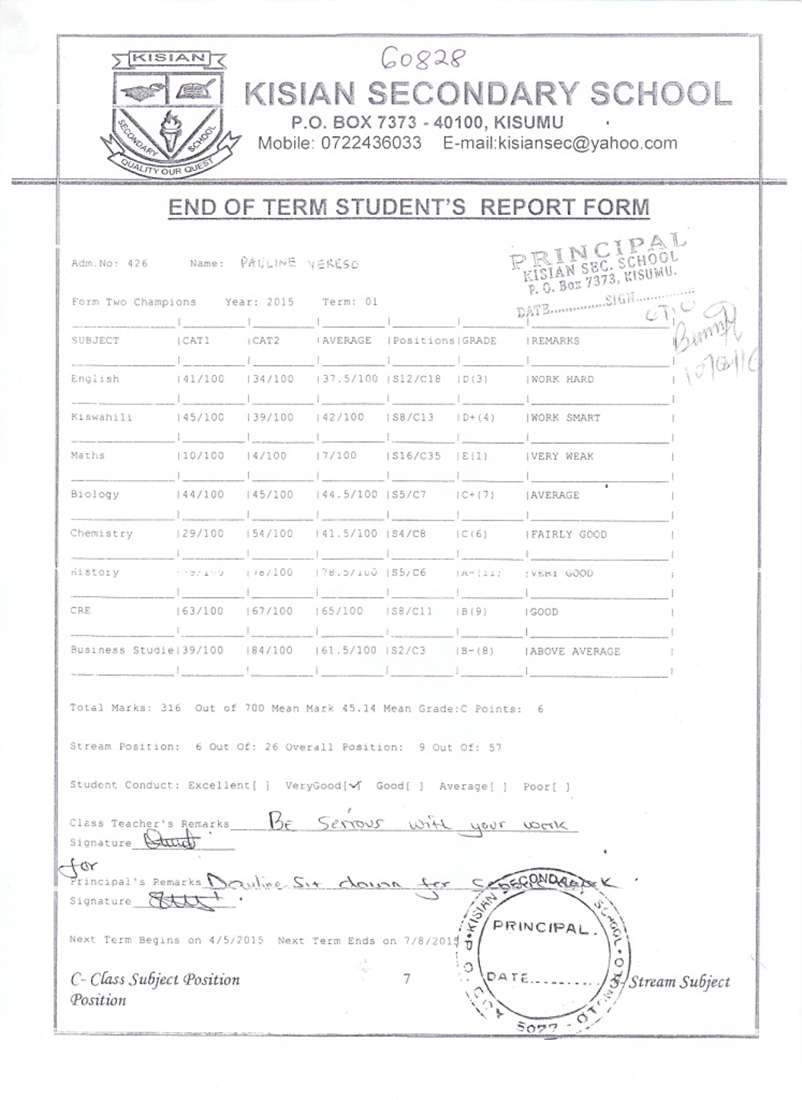 60828
KISIAN
SECONDARY SCHOOL
QUALITY OUR QUEST
KISIAN SECONDARY SCHOOL
P.O. BOX 7373 - 40100, KISUMU
Mobile: 0722436033 E-mail:kisiansec@yahoo.com
END OF TERM STUDENT'S REPORT FORM
PRINCIPAL
KISIAN SEC. SCHOOL
P. O. Box 7373, KISUMU.
DATE...............SIGN...............
Adm.No: 426 Name: PAULINE
Form Two Champions Year: 2015 Term: 01
SUBJECT |CAT1 |CAT2 |AVERAGE |Positions|GRADE |REMARKS
English |41/100 |34/100 |37.5/100 |S12/C18 |D(3) |WORK HARD
Kiswahili |45/100 |39/100 |42/100 |S8/C13 |D+(4) |WORK SMART
Maths |10/100 |4/100 |7/100 |S16/C35 |E(1) |VERY WEAK
Biology |44/100 |45/100 |44.5/100 |S5/C7 |C+(7) |AVERAGE
Chemistry |29/100 |54/100 |41.5/100 |S4/C8 |C(6) |FAIRLY GOOD
History |78/100 |78.5/100 |S5/C6 |A-(11) |VERY GOOD
CRE |63/100 |67/100 |65/100 |S8/C11 |B(9) |GOOD
Business Studie|39/100 |84/100 |61.5/100 |S2/C3 |B-(8) |ABOVE AVERAGE
Total Marks: 316 Out of 700 Mean Mark 45.14 Mean Grade:C Points: 6
Stream Position: 6 Out Of: 26 Overall Position: 9 Out Of: 57
Student Conduct: Excellent[ ] VeryGood[✓] Good[ ] Average[ ] Poor[ ]
Class Teacher's Remarks Be serious with your work
Signature
for
Principal's Remarks Pauline Sit down for
Signature
Next Term Begins on 4/5/2015 Next Term Ends on 7/8/2015
KISIAN SECONDARY SCHOOL
PRINCIPAL.
DATE..........
C- Class Subject Position 7 S- Stream Subject
Position